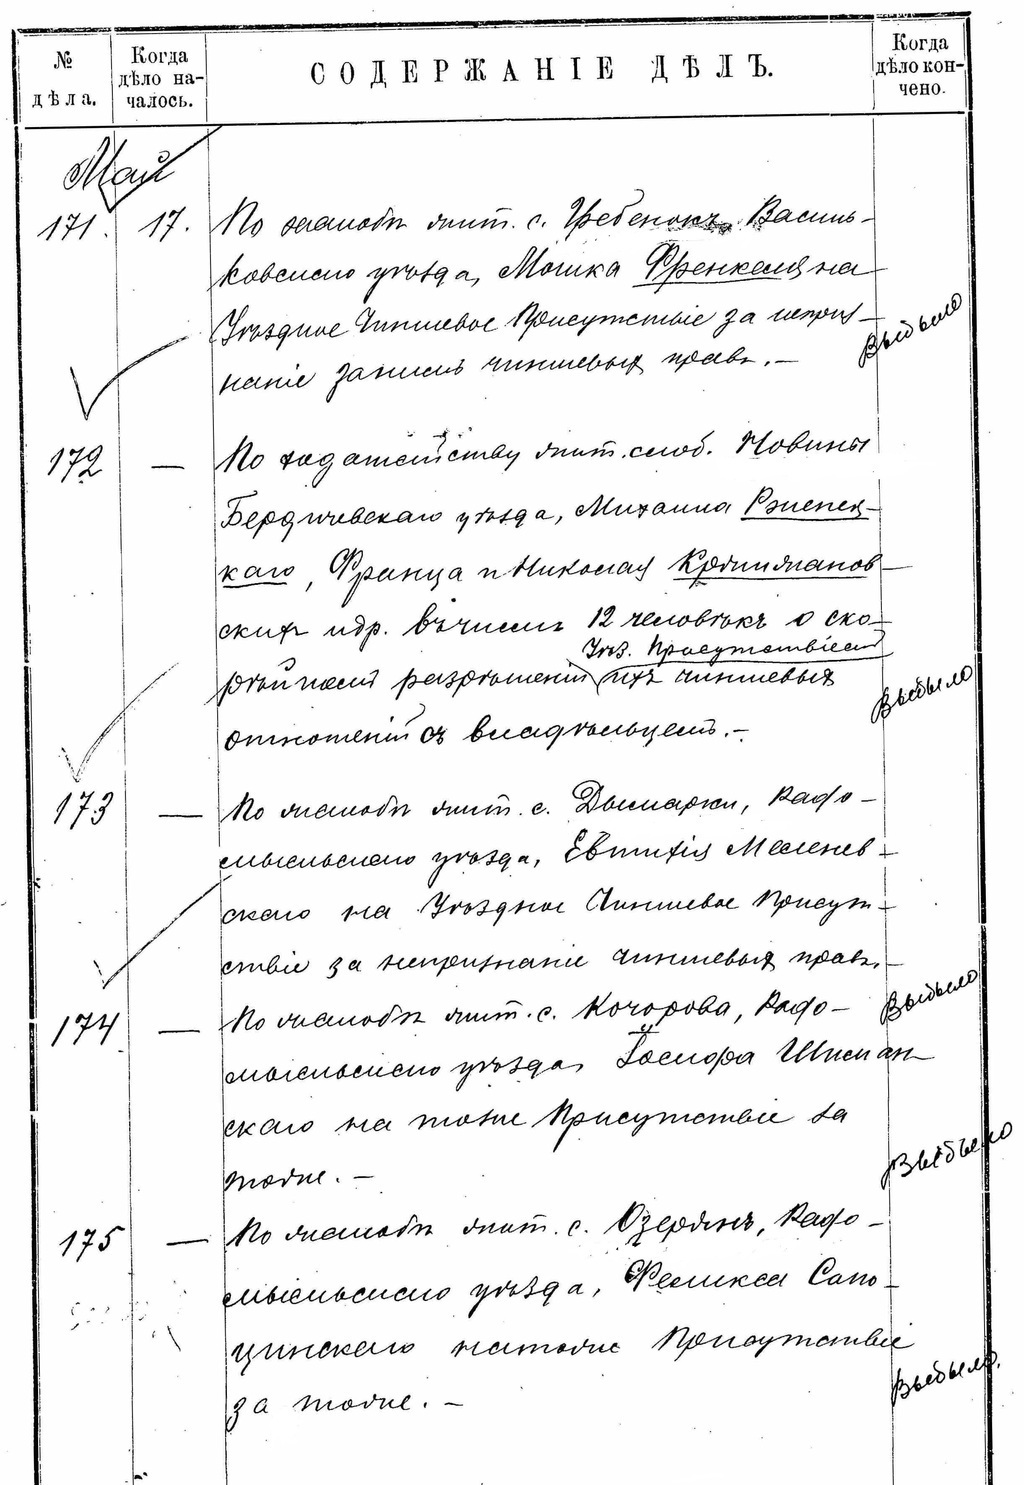 № дѣла.
Когда дѣло началось.
СОДЕРЖАНІЕ ДѢЛЪ.
Когда дѣло кончено.
Май
171. 17. По жалобѣ жит. с. Гребенокъ, Василь-
ковскаго уѣзда, Мошка Френкеля на
Уѣздное Чиншевое Присутствіе за неприз-
наніе за нимъ чиншевыхъ правъ.—
Выбыло
172 — По ходатайству жит. слоб. Новины
Бердичевскаго уѣзда, Михаила
каго, Франца и Николая
скихъ и др. въ числѣ 12 человѣкъ о ско-
Уѣз. Присутствіемъ
рѣйшемъ разрѣшеніи ихъ чиншевыхъ
отношеній съ владѣльцемъ.—
Выбыло
173 — По жалобѣ жит. с. Дымарки, Радо-
мысльскаго уѣзда, Евтихія Меленев-
скаго на Уѣздное Чиншевое Присут-
ствіе за непризнаніе чиншевыхъ правъ.—
Выбыло
174 — По жалобѣ жит. с. Кочорова, Радо-
мысльскаго уѣзда,
скаго на тоже Присутствіе за
тоже.—
Выбыло
175 — По жалобѣ жит. с. Озерянъ, Радо-
мысльскаго уѣзда, Феликса Сапо-
цинскаго на тоже Присутствіе
за тоже.—
Выбыло.